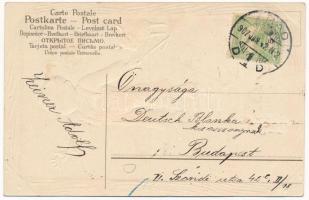 Carte Postale
Postkarte — Post card
Cartolina Postale - Levelező Lap
Dopisnice - Briefkaart - Brevkort
ОТКРЫТОЕ ПИСЬМО.
Tarjeta postal - Cartão postal
Union postale Universelle.
Őnagysága
Deutsch Blanka
kisasszonynak
Budapest
V. Szondi utca 42